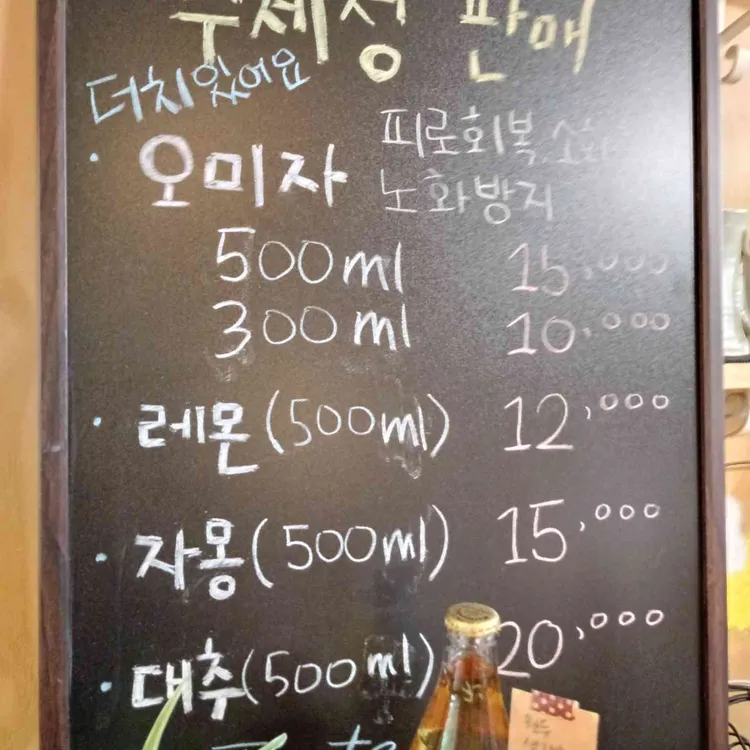 수제청 판매
더치있어요
· 오미자 피로회복, 소화
노화방지
500ml 15,000
300ml 10,000
· 레몬(500ml) 12,000
· 자몽(500ml) 15,000
· 대추(500ml) 20,000